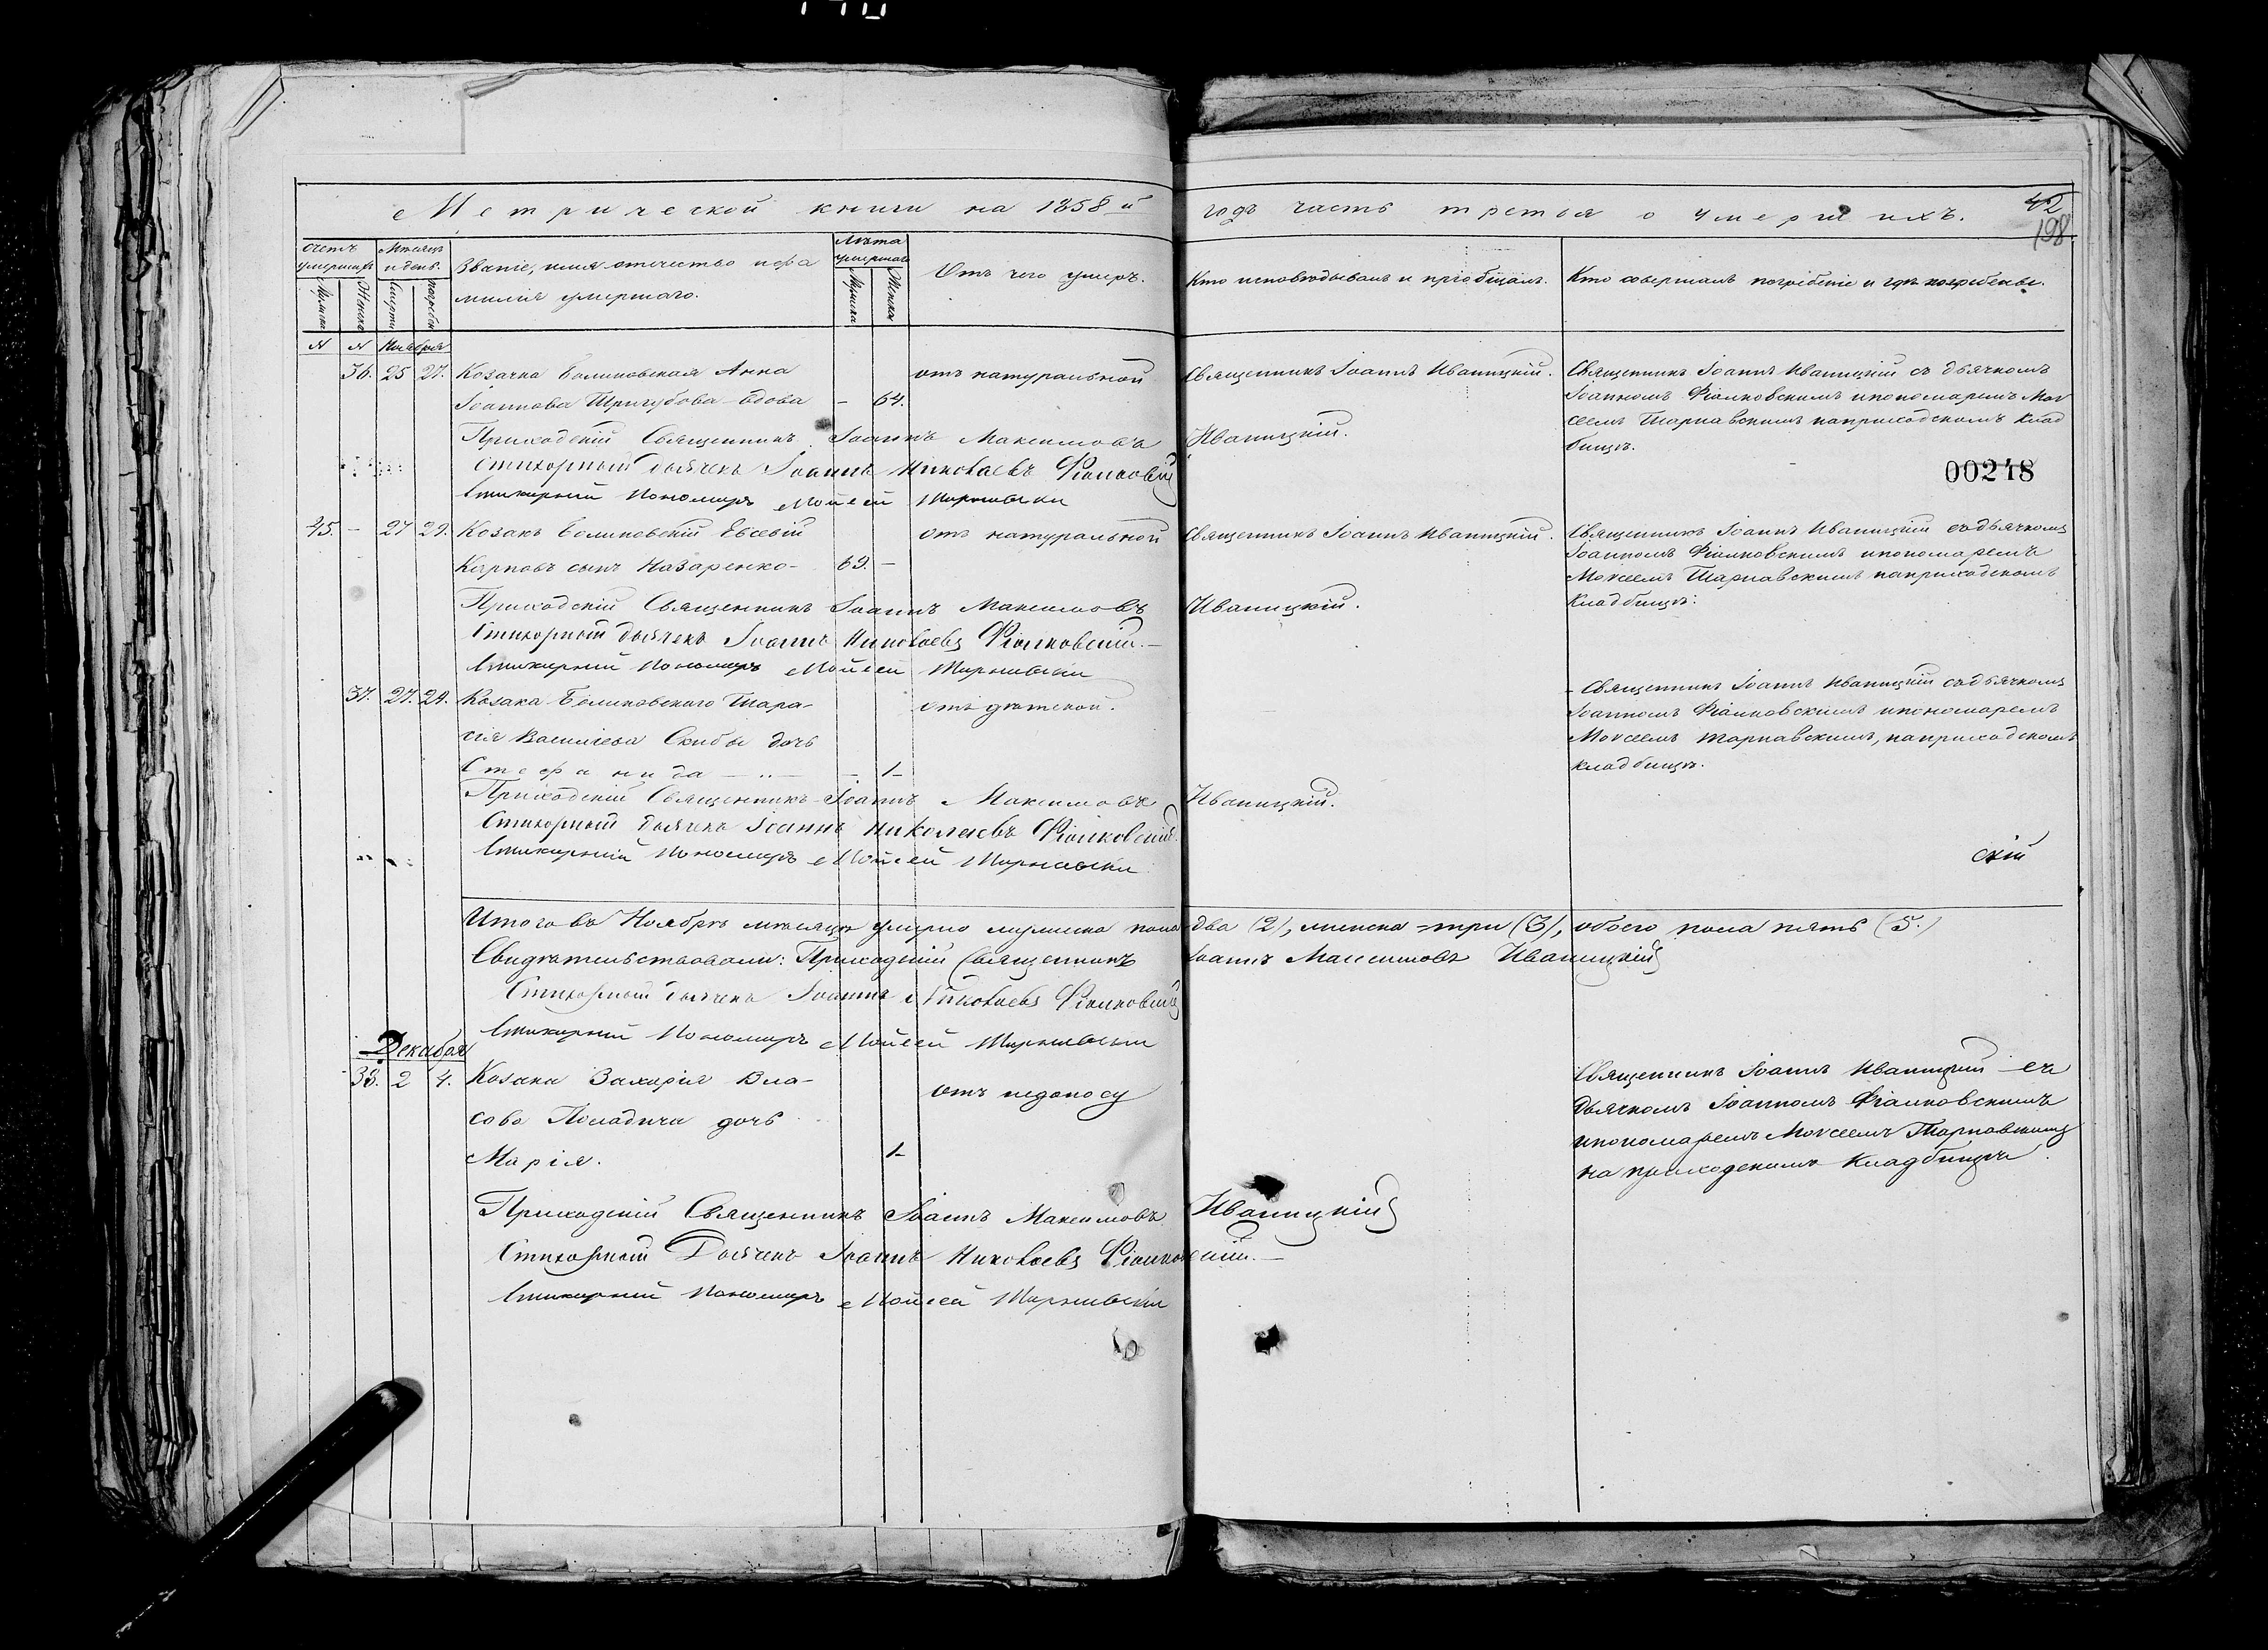 Метрической книги на 1858-й годъ часть третья о умершихъ.
42
198
Счетъ умершихъ
Мѣсяцъ и день.
Званіе, имя отечество и фамилія умершаго.
Лѣта умершаго
Отъ чего умеръ.
Кто исповѣдывалъ и пріобщалъ.
Кто совершалъ погребеніе и гдѣ погребены.
Мужска
Женска
Смерти
Погребен
Мужска
Женска
№ № Ноября
36. 25 27. Козачка Анна
Іоаннова вдова – 64.
отъ натуральной
Священникъ Іоаннъ Иваницкій.
Священникъ Іоаннъ Иваницкій съ дьячкомъ
Іоанномъ Фіалковскимъ и пономаремъ Мой
сеемъ Тарнавскимъ на приходскомъ клад
бищѣ.
Приходскій Священникъ Іоаннъ Максимовъ Иваницкій.
Стихарный дьячекъ Іоаннъ Николаевъ Фіалковскій
Стихарный Пономарь Мойсей Тарнавскій
00248
45. – 27 29. Козакъ Евсевій
Карповъ сынъ Назаренко– 69. –
отъ натуральной
Священникъ Іоаннъ Иваницкій.
Священникъ Іоаннъ Иваницкій съ дьячкомъ
Іоанномъ Фіалковскимъ и пономаремъ
Мойсеемъ Тарнавскимъ на приходскомъ
кладбищѣ.
Приходскій Священникъ Іоаннъ Максимовъ Иваницкій.
Стихарный дьячекъ Іоаннъ Николаевъ Фіалковскій.–
Стихарный Пономарь Мойсей Тарнавскій
37. 27. 29. Козака Тара–
сія Васильева Скибы дочь
Стефанида – 1–
отъ дѣтской.
Священникъ Іоаннъ Иваницкій съ дьячкомъ
Іоанномъ Фіалковскимъ и пономаремъ
Мойсеемъ Тарнавскимъ, на приходскомъ
кладбищѣ.
Приходскій Священникъ Іоаннъ Максимовъ Иваницкій.
Стихарный дьячекъ Іоаннъ Николаевъ Фіалковскій.
Стихарный Пономарь Мойсей Тарнавскій
скій
Итого въ Ноябрѣ мѣсяцѣ умерло мужеска пола два (2), женска – три (3), обоего пола пять (5.)
Свидѣтельствовали: Приходскій Священникъ Іоаннъ Максимовъ Иваницкій
Стихарный дьячекъ Іоаннъ Николаевъ Фіалковскій
Стихарный Пономарь Мойсей Тарнавскій
Декабря
38. 2 4. Козака Захарія Вла–
сова дочь
Марія. 1–
отъ недоносу
Священникъ Іоаннъ Иваницкій съ
дьячкомъ Іоанномъ Фіалковскимъ
и пономаремъ Мойсеемъ Тарнавскимъ
на приходскомъ кладбищѣ.
Приходскій Священникъ Іоаннъ Максимовъ Иваницкій
Стихарный Дьячекъ Іоаннъ Николаевъ Фіалковскій.–
Стихарный Пономарь Мойсей Тарнавскій